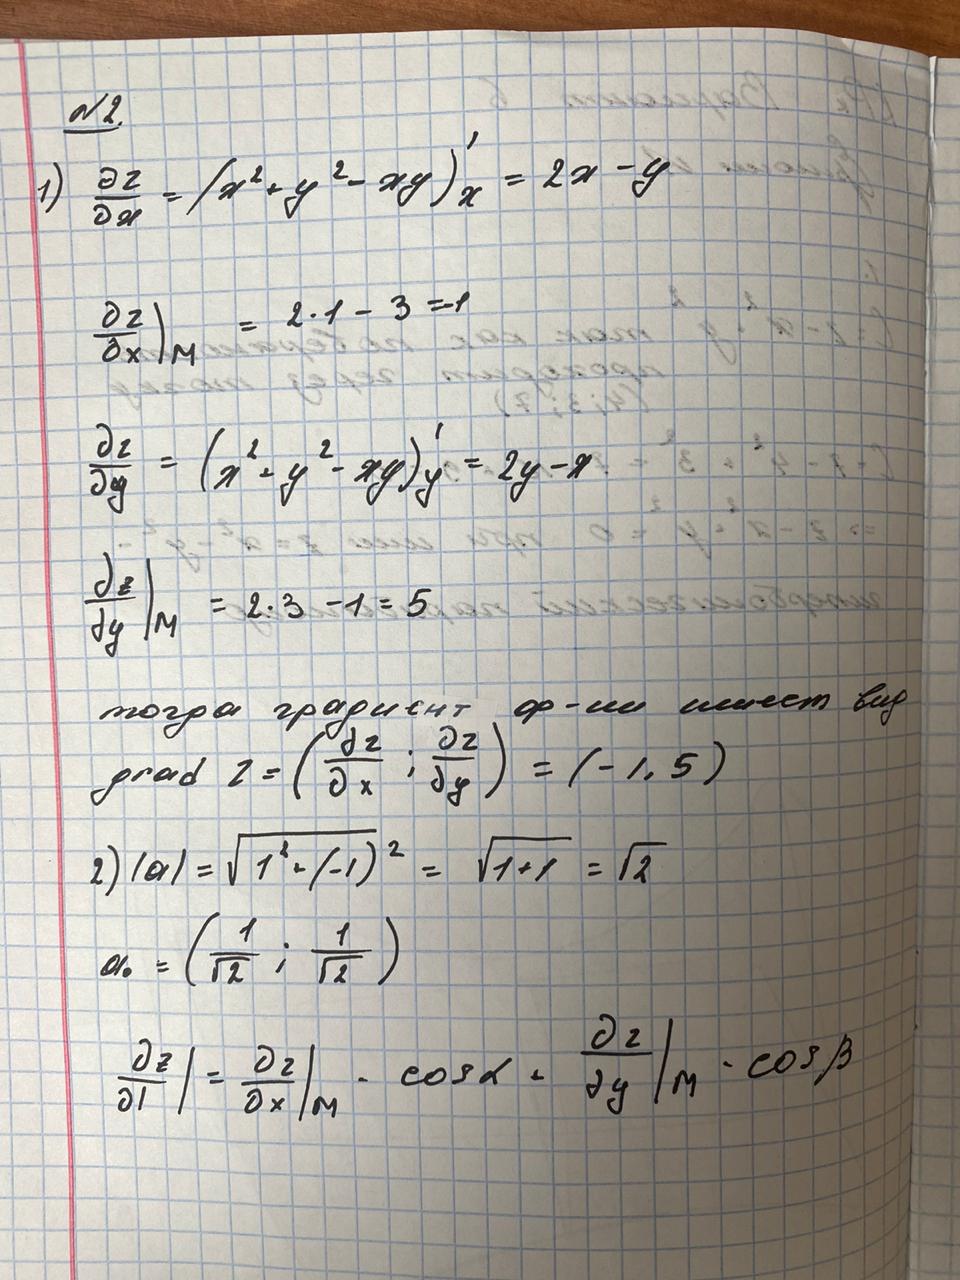 №2.
1) ∂z/∂x = (x² + y² - xy)'x = 2x - y
∂z/∂x|M = 2·1 - 3 = -1
∂z/∂y = (x² + y² - xy)'y = 2y - x
∂z/∂y|M = 2·3 - 1 = 5
тогда градиент ф-ии имеет вид
grad z = (∂z/∂x ; ∂z/∂y) = (-1, 5)
2) |a| = √(1² + (-1)²) = √(1+1) = √2
a₀ = (1/√2 ; 1/√2)
∂z/∂l| = ∂z/∂x|M · cosα + ∂z/∂y|M · cosβ